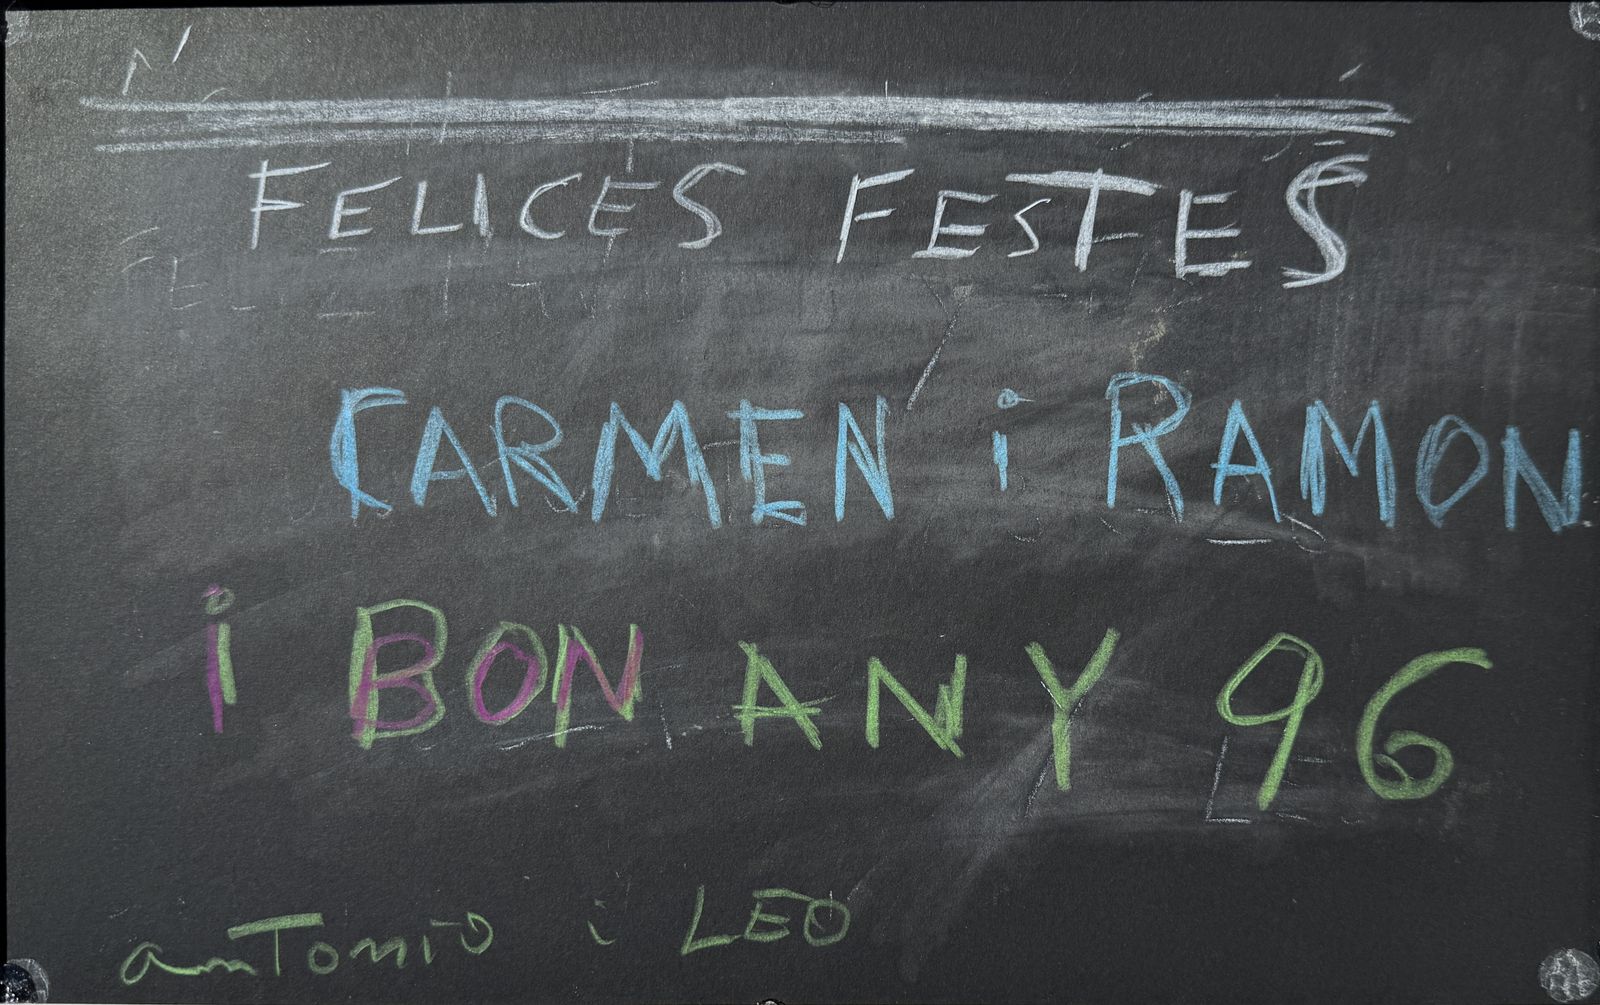 FELICES FESTES
CARMEN i RAMON
i BON ANY 96
anTonio i LEO